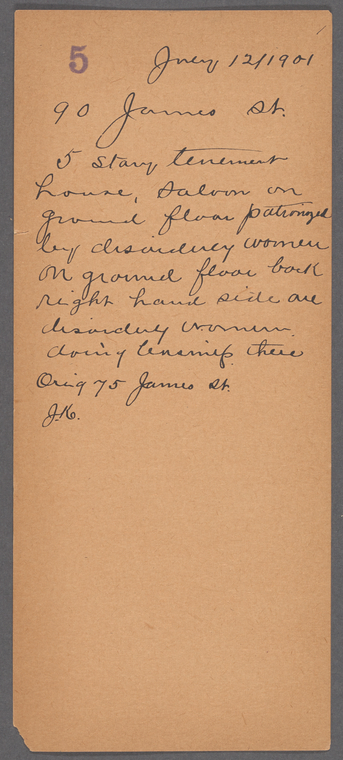 5
July 12/1901
90 James St.
5 story tenement
house, saloon on
ground floor patronized
by disorderly women
on ground floor back
right hand side are
disorderly women
doing business there
Orig 75 James St.
J.K.